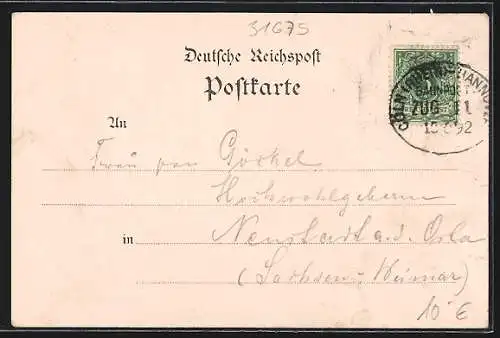 31675
Deutsche Reichspost
Postkarte
An
Frau von Göckel
Hochwohlgeboren
in Neustadt a. d. Orla
(Sachsen-Weimar)
CÖLN HANNOVER
BAHNPOST
ZUG 11
92
10 €